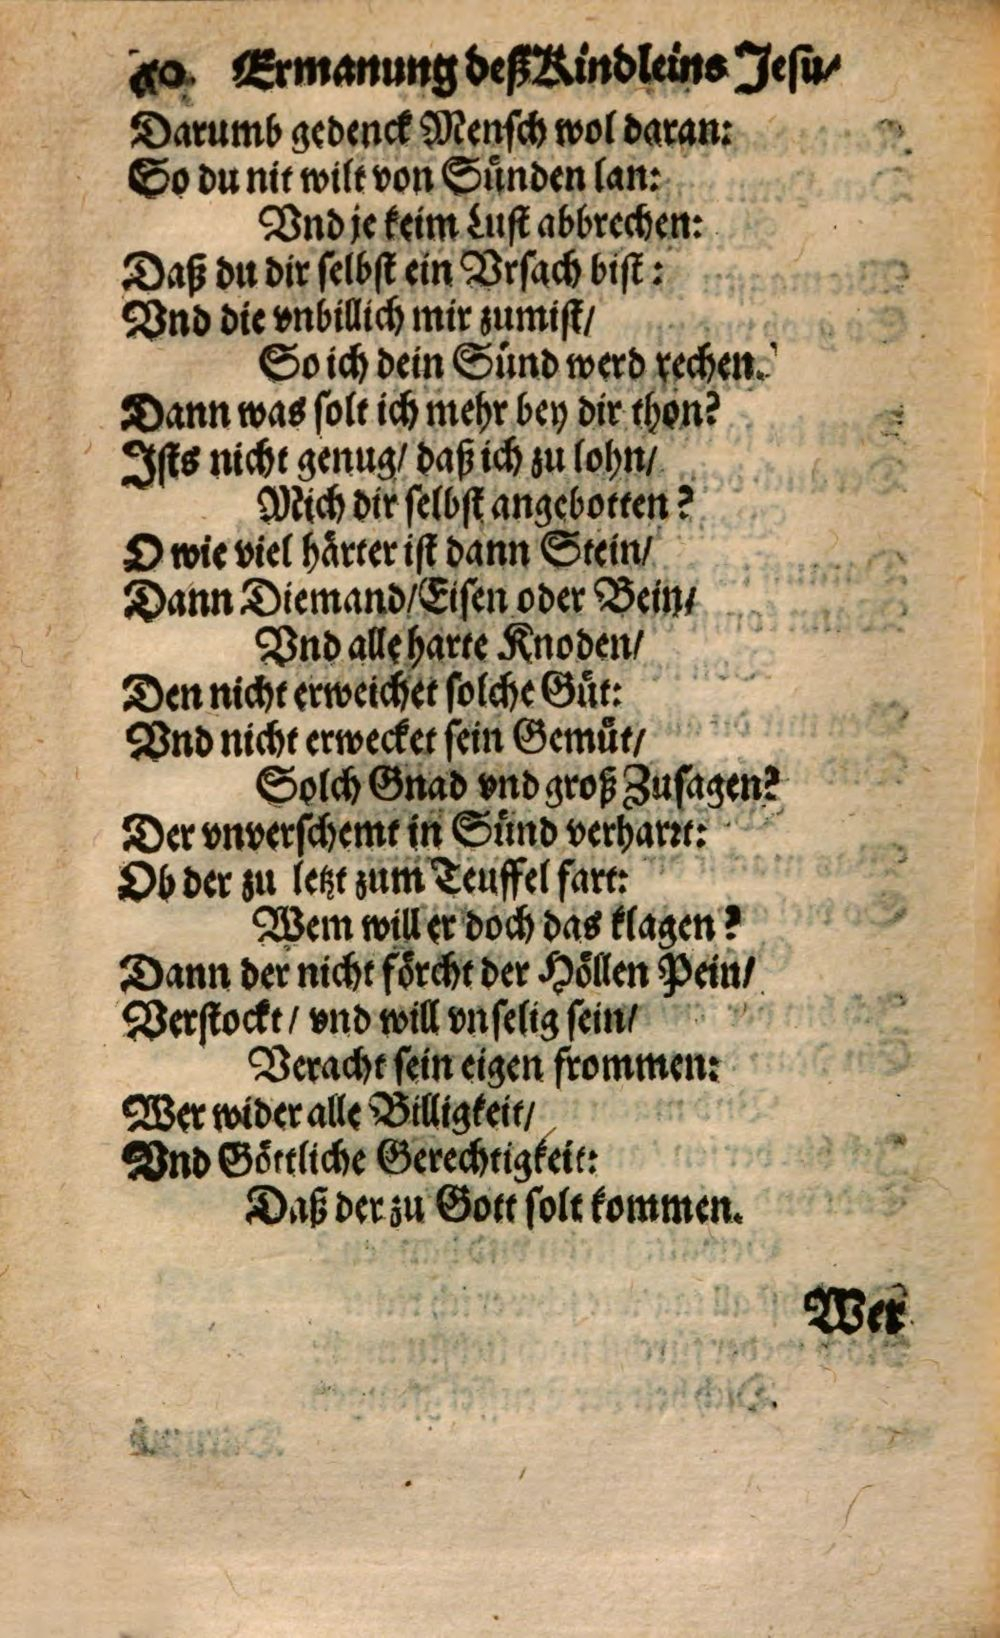 Ermanung deß Kindleins Jesu/
Darumb gedenck Mensch wol daran:
So du nit wilt von Sünden lan:
Vnd je keim Lust abbrechen:
Daß du dir selbst ein Vrsach bist:
Vnd die vnbillich mir zumist/
So ich dein Sünd werd rechen.
Dann was solt ich mehr bey dir thon?
Ists nicht genug/ daß ich zu lohn/
Mich dir selbst angebotten?
O wie viel härter ist dann Stein/
Dann Diemand/ Eisen oder Bein/
Vnd alle harte Knoden/
Den nicht erweichet solche Güt:
Vnd nicht erwecket sein Gemüt/
Solch Gnad vnd groß Zusagen?
Der vnverschemt in Sünd verharrt:
Ob der zu letzt zum Teuffel fart:
Wem will er doch das klagen?
Dann der nicht förcht der Höllen Pein/
Verstockt/ vnd will vnselig sein/
Veracht sein eigen frommen:
Wer wider alle Billigkeit/
Vnd Göttliche Gerechtigkeit:
Daß der zu Gott solt kommen.
Wer